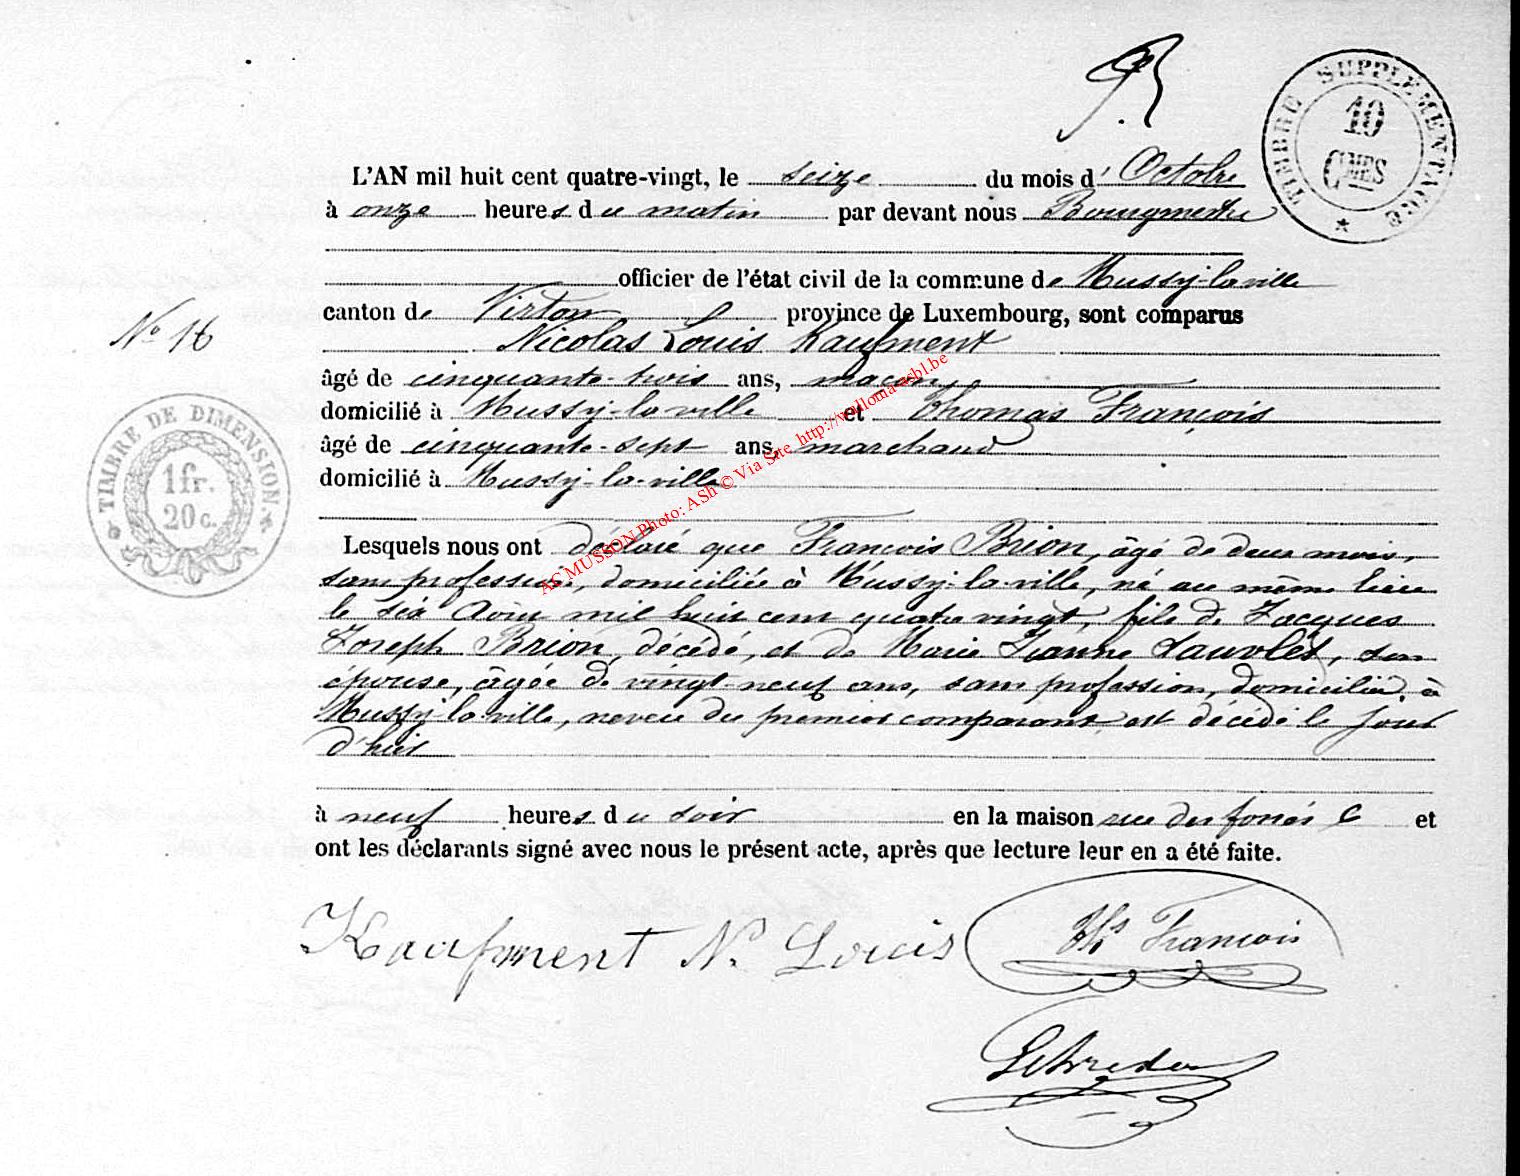 TIMBRE SUPPLÉMENTAIRE
10
CMES
L'AN mil huit cent quatre-vingt, le seize du mois d'Octobre
à onze heures du matin par devant nous Bourgmestre
officier de l'état civil de la commune de Mussy-la-ville
canton de Virton province de Luxembourg, sont comparus
N° 16
Nicolas Louis Kaufment
âgé de cinquante-trois ans, maçon,
domicilié à Mussy-la-ville et Thomas François
âgé de cinquante-sept ans, marchand
domicilié à Mussy-la-ville
TIMBRE DE DIMENSION.
1 fr.
20 c.
AC MUSSON Photo: ASh © Via Site http://walloma-asbl.be
Lesquels nous ont déclaré que François Brion, âgé de deux mois,
sans profession, domiciliée à Mussy-la-ville, né au même lieu
le six Août mil huit cent quatre vingt, fils de Jacques
Joseph Brion, décédé, et de Marie Jeanne Lauvlet, son
épouse, âgée de vingt-neuf ans, sans profession, domiciliée à
Mussy-la-ville, neveu du premier comparant est décédé le jour
d'hier
à neuf heures du soir en la maison rue des et
ont les déclarants signé avec nous le présent acte, après que lecture leur en a été faite.
Kaufment N. Louis Ths François